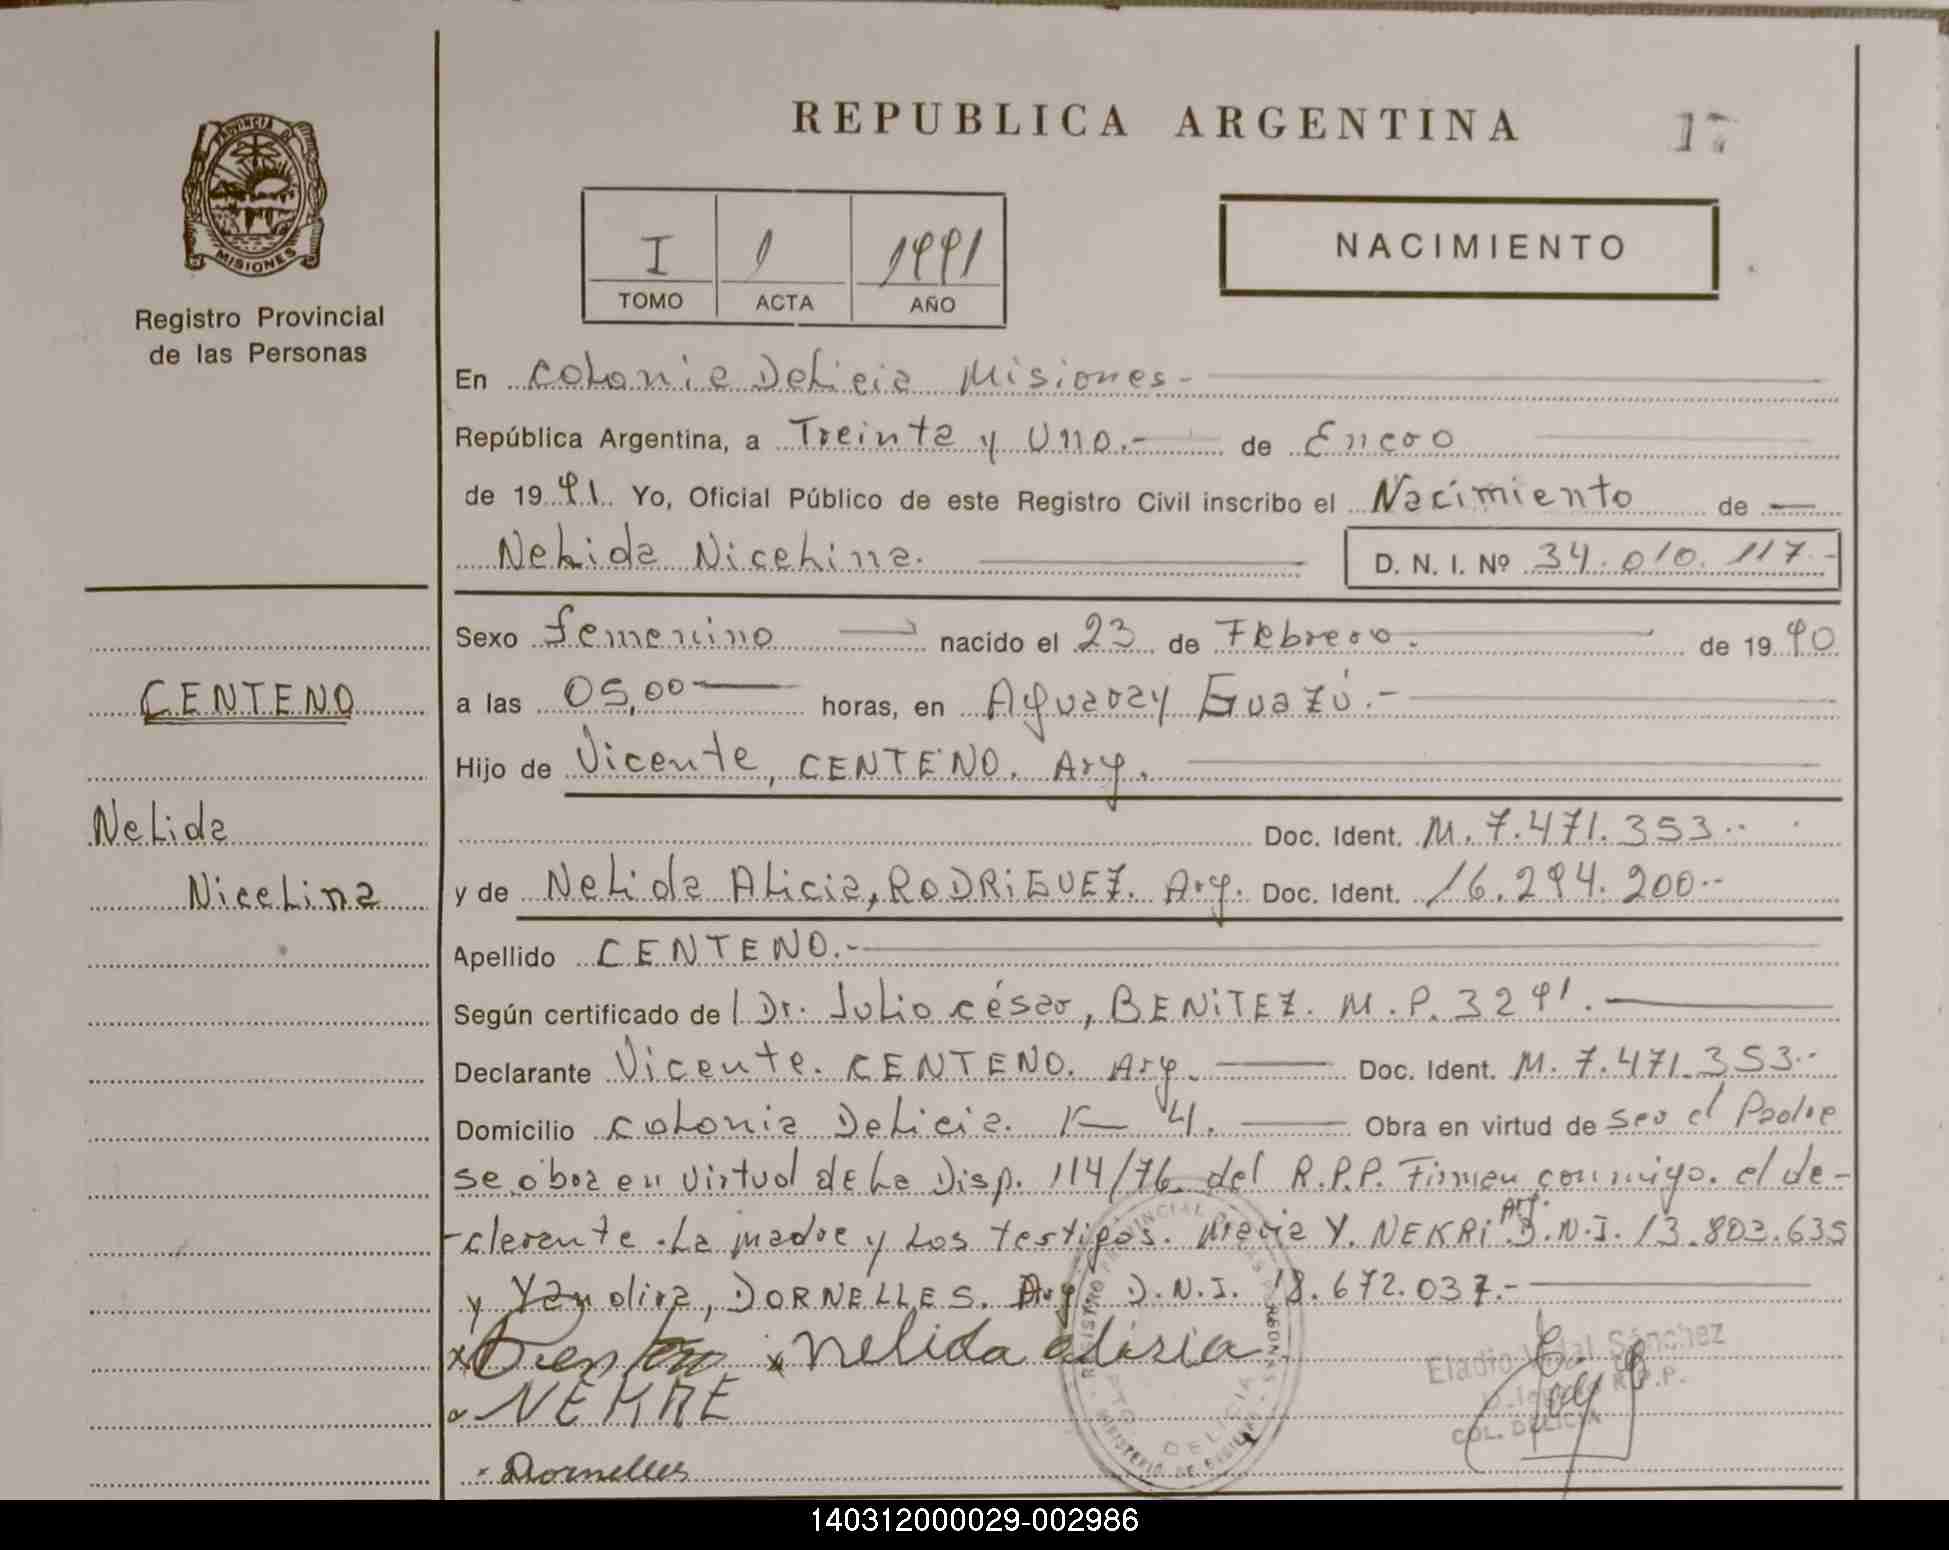 REPUBLICA ARGENTINA 17
PROVINCIA DE
MISIONES
Registro Provincial
de las Personas
I 1 1991
TOMO ACTA AÑO
NACIMIENTO
En Colonia Delicia Misiones.-
República Argentina, a Treinta y Uno.- de Enero
de 1991. Yo, Oficial Público de este Registro Civil inscribo el Nacimiento de —
Nelida Nicelina. D. N. I. Nº 34.010.117.-
Sexo femenino nacido el 23 de Febrero. de 1990
CENTENO
a las 05,00 horas, en Aguaray Guazú.-
Hijo de Vicente, CENTENO. Arg.
Nelida
Doc. Ident. M. 7.471.353..
Nicelina
y de Nelida Alicia, RODRiGUEZ. Arg. Doc. Ident. 16.294.200..
Apellido CENTENO.-
Según certificado de l Dr. Julio césar, BENiTEZ. M.P. 3291.
Declarante Vicente. CENTENO. Arg. Doc. Ident. M. 7.471.353..
Domicilio colonia Delicia. K— 4. Obra en virtud de ser el Padre
se obra en virtud de La Disp. 114/76 del R.P.P. Firman conmigo. el de-
-clarante. La madre y Los testigos. Maria Y. NEKRi Arg. D.N.I. 13.803.635
y Yandira, DORNELLES. Arg D.N.I. 18.672.037.-
x Centeno x nelida alisia
NEKRE
Dornelles
Eladio Vidal Sánchez
R.P.P.
COL. DELICIA
REGISTRO PROVINCIAL DE LAS PERSONAS
DELICIA
140312000029-002986